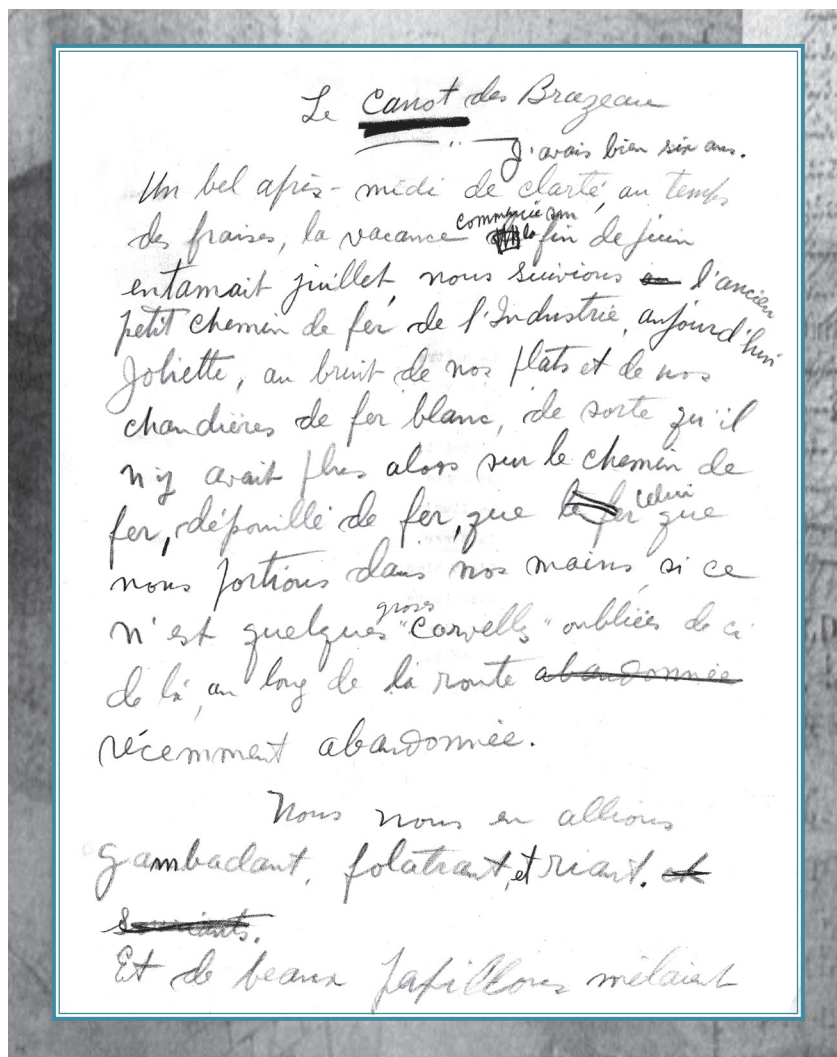 Le Canot des Brazeau
J'avais bien six ans.
Un bel après-midi de clarté, au temps
des fraises, la vacance commencée en la fin de juin
entamait juillet, nous suivions l'ancien
petit chemin de fer de l'Industrie, aujourd'hui
Joliette, au bruit de nos plats et de nos
chaudières de fer blanc, de sorte qu'il
n'y avait plus alors sur le chemin de
fer, dépouillé de fer, que celui que
nous portions dans nos mains, si ce
n'est quelques groses "corvells" oubliées de ci
de là, au long de la route abandonnée
récemment abandonnée.
Nous nous en allions
gambadant, folatrant, et riant. et
Et de beaux papillons mêlaient